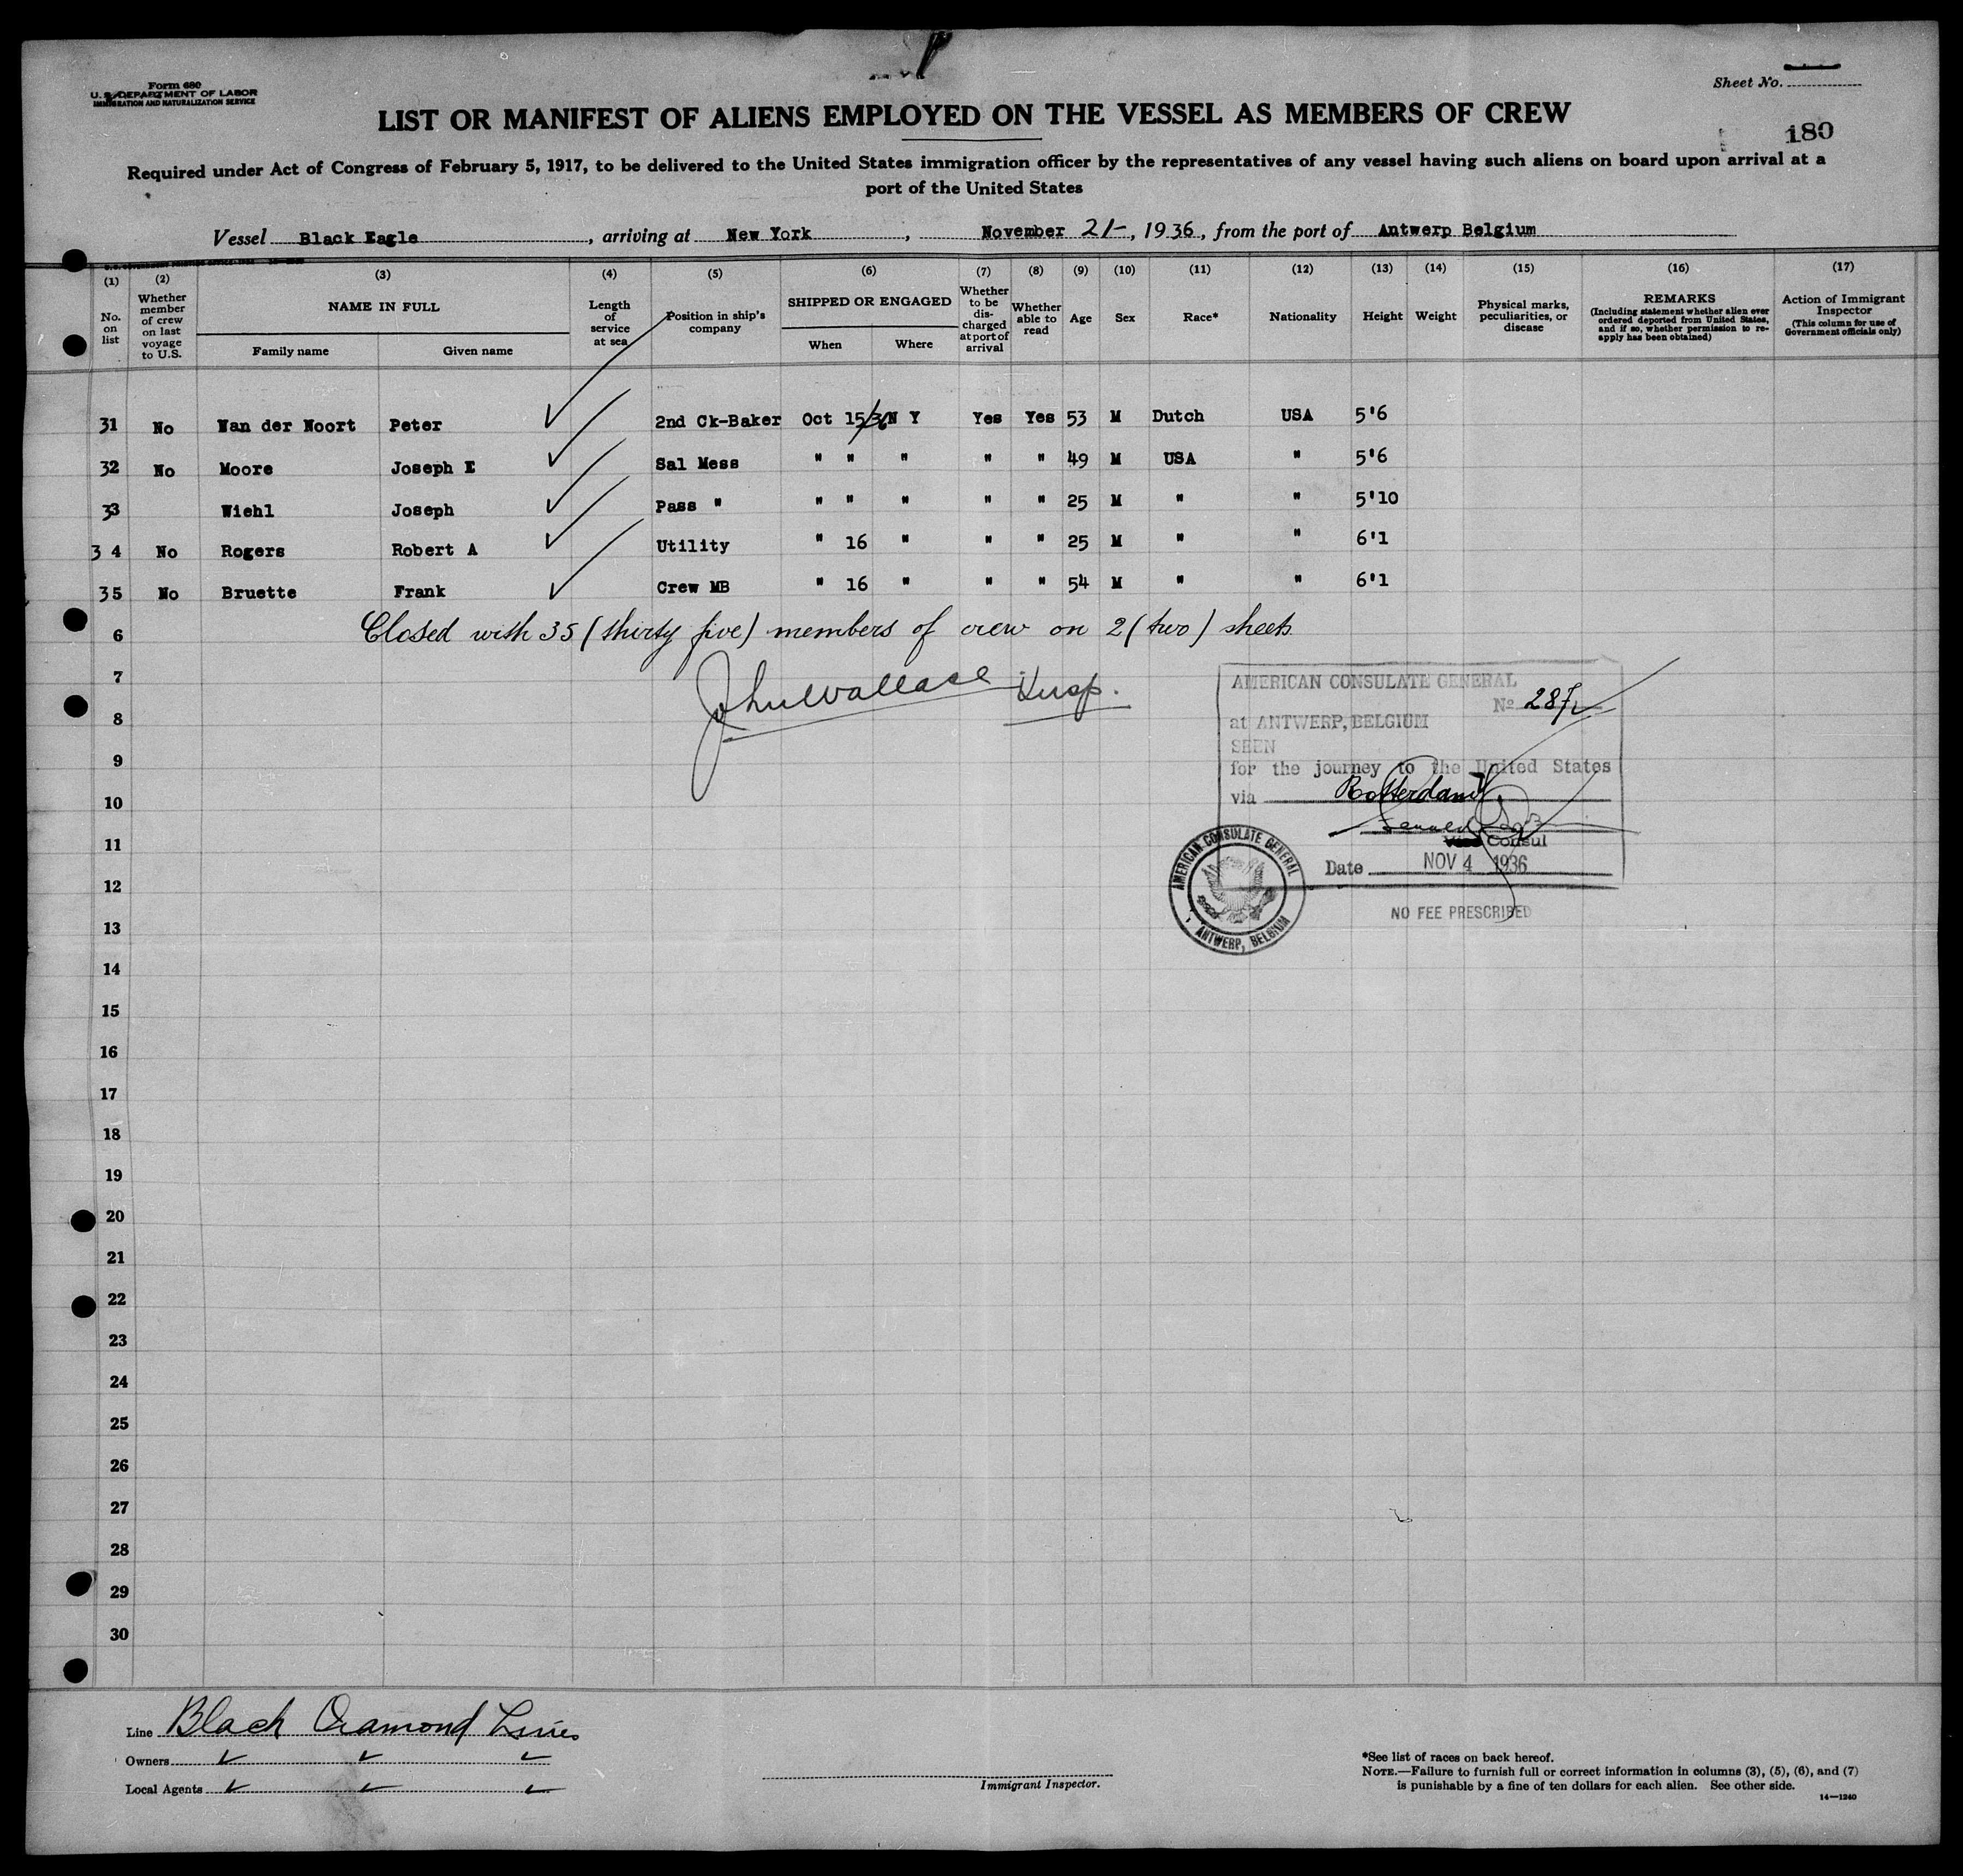 Form 680
U. S. DEPARTMENT OF LABOR
IMMIGRATION AND NATURALIZATION SERVICE
Sheet No.
LIST OR MANIFEST OF ALIENS EMPLOYED ON THE VESSEL AS MEMBERS OF CREW
180
Required under Act of Congress of February 5, 1917, to be delivered to the United States immigration officer by the representatives of any vessel having such aliens on board upon arrival at a
port of the United States
Vessel Black Eagle, arriving at New York, November 21-, 1936, from the port of Antwerp Belgium
(1) (2) (3) (4) (5) (6) (7) (8) (9) (10) (11) (12) (13) (14) (15) (16) (17)
No. on list
Whether member of crew on last voyage to U.S.
NAME IN FULL
Family name
Given name
Length of service at sea
Position in ship's company
SHIPPED OR ENGAGED
When
Where
Whether to be discharged at port of arrival
Whether able to read
Age
Sex
Race*
Nationality
Height
Weight
Physical marks, peculiarities, or disease
REMARKS
(Including statement whether alien ever ordered deported from United States, and if so, whether permission to reapply has been obtained)
Action of Immigrant Inspector
(This column for use of Government officials only)
31 No Van der Noort Peter 2nd Ck-Baker Oct 15/36 N Y Yes Yes 53 M Dutch USA 5'6
32 No Moore Joseph E Sal Mess " " " " " 49 M USA " 5'6
33 Wiehl Joseph Pass " " " " " " 25 M " " 5'10
34 No Rogers Robert A Utility " 16 " " " 25 M " " 6'1
35 No Bruette Frank Crew MB " 16 " " " 54 M " " 6'1
6 Closed with 35 (thirty five) members of crew on 2 (two) sheets
7 AMERICAN CONSULATE GENERAL
8 at ANTWERP, BELGIUM
SEEN
9 for the journey to the United States
10 via Rotterdam
11 Consul
Date NOV 4 1936
12
13 NO FEE PRESCRIBED
AMERICAN CONSULATE GENERAL
ANTWERP, BELGIUM
14
15
16
17
18
19
20
21
22
23
24
25
26
27
28
29
30
Line Black Diamond Lines
Owners
Local Agents
Immigrant Inspector.
*See list of races on back hereof.
NOTE.—Failure to furnish full or correct information in columns (3), (5), (6), and (7)
is punishable by a fine of ten dollars for each alien. See other side.
14—1240